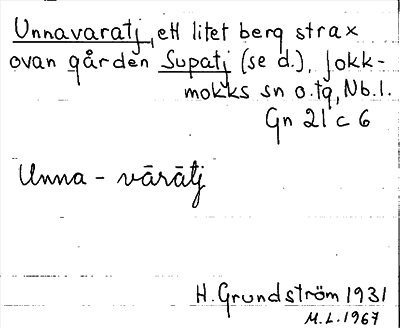 Unnavaratj, ett litet berg strax
ovan gården Supatj (se d.), Jokk-
mokks sn o. tg, Nb. l.
Gn 21 c 6
Unna - vārātj
H. Grundström 1931
M. L. 1967